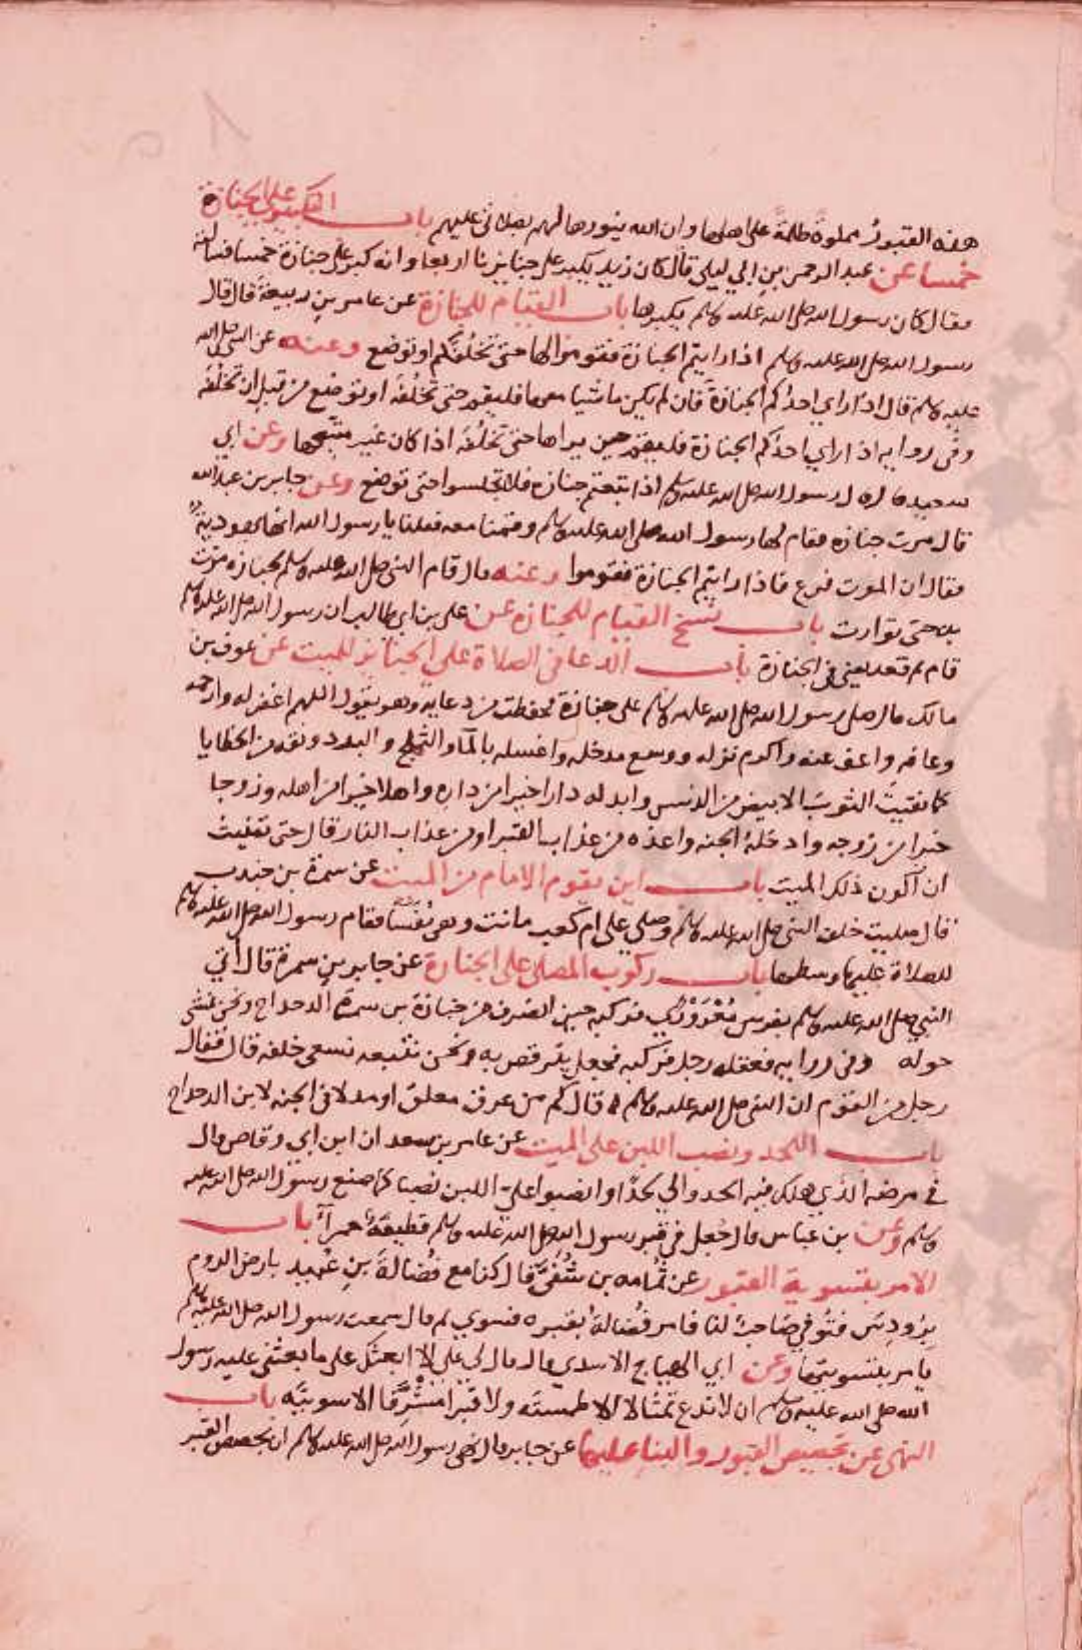 هذه القبور مملوة ظلمة على اهلها وان الله ينورها لهم بصلاتى عليهم باب التكبير على الجنازة
خمسا عن عبد الرحمن بن ابي ليلى قال كان زيد يكبر على جنايزنا اربعا وانه كبر على جنازة خمسا فسالته
فقال كان رسول الله صلى الله عليه وسلم يكبرها باب القيام للجنازة عن عامر بن ربيعة قال قال
رسول الله صلى الله عليه وسلم اذا رايتم الجنازة فقوموا لها حتى تخلفكم او توضع وعنه عن النبي صلى الله
عليه وسلم قال اذا راي احدكم الجنازة فان لم يكن ماشيا معها فليقم حتى تخلفه او توضع من قبل ان تخلفه
وفى روايه اذا راي احدكم الجنازة فليقم حين يراها حتى تخلفه اذا كان غير متبعها وعن ابي
سعيد قال قال رسول الله صلى الله عليه وسلم اذا تبعتم جنازه فلا تجلسوا حتى توضع وعن جابر بن عبد الله
قال مرت جنازه فقام لها رسول الله صلى الله عليه وسلم وقمنا معه فقلنا يا رسول الله انها يهودية
فقال ان الموت فزع فاذا رايتم الجنازة فقوموا وعنه قال قام النبى صلى الله عليه وسلم لجنازه مرت
به حتى توارت باب نسخ القيام للجنازه عن على بن ابي طالب ان رسول الله صلى الله عليه وسلم
قام ثم قعد يعني في الجنازة باب الدعا فى الصلاة على الجنايز للميت عن عوف بن
مالك قال صلى رسول الله صلى الله عليه وسلم على جنازة فحفظت من دعايه وهو يقول اللهم اغفر له وارحمه
وعافه واعف عنه واكرم نزله ووسع مدخله واغسله بالمآ والثلج والبرد ونقه من الخطايا
كما نقيت الثوب الابيض من الدنس وابدله دارا خيرا من داره واهلا خيرا من اهله وزوجا
خيرا من زوجه وادخله الجنه واعذه من عذاب القبر او من عذاب النار قال حتى تمنيت
ان اكون ذلك الميت باب اين يقوم الامام من الميت عن سمرة بن جندب
قال صليت خلف النبى صلى الله عليه وسلم وصلي على ام كعب ماتت وهى نفسا فقام رسول الله صلى الله عليه وسلم
للصلاة عليها وسطها باب ركوب المصلى على الجنازة عن جابر بن سمرة قال أتي
النبي صلى الله عليه وسلم بفرس معرورًى فركبه حين انصرف من جنازة بن سمرة الدحداح ونحن نمشي
حوله وفى روايه فعقله رجل فركبه فجعل يتوقص به ونحن نتبعه نسعى خلفه قال فقال
رجل من القوم ان النبى صلى الله عليه وسلم قال كم من عرق معلق او مدلا فى الجنه لابن الدحداح
باب اللحد ونصب اللبن على الميت عن عامر بن سعد ان ابن ابي وقاص قال
في مرضه الذي هلك فيه الحدوا لي لحدًا وانصبوا علي اللبن نصبا كما صنع رسول الله صلى الله عليه
وسلم وعن بن عباس قال جعل في قبر رسول الله صلى الله عليه وسلم قطيفة حمرآ باب
الامر بتسوية القبور عن ثمامه بن شفي قال كنا مع فضالة بن عبيد بارض الروم
برودس فتوفي صاحب لنا فامر فضالة بقبره فسوي ثم قال سمعت رسول الله صلى الله عليه وسلم
يامر بتسويتها وعن ابي الهياج الاسدي قال قال لي علي الا ابعثك على ما بعثني عليه رسول
الله صلى الله عليه وسلم ان لا تدع تمثالا الا طمسته ولا قبرا مشرفا الا سويته باب
النهى عن تجصيص القبور والبنا عليها عن جابر قال نهى رسول الله صلى الله عليه وسلم ان يجصص القبر